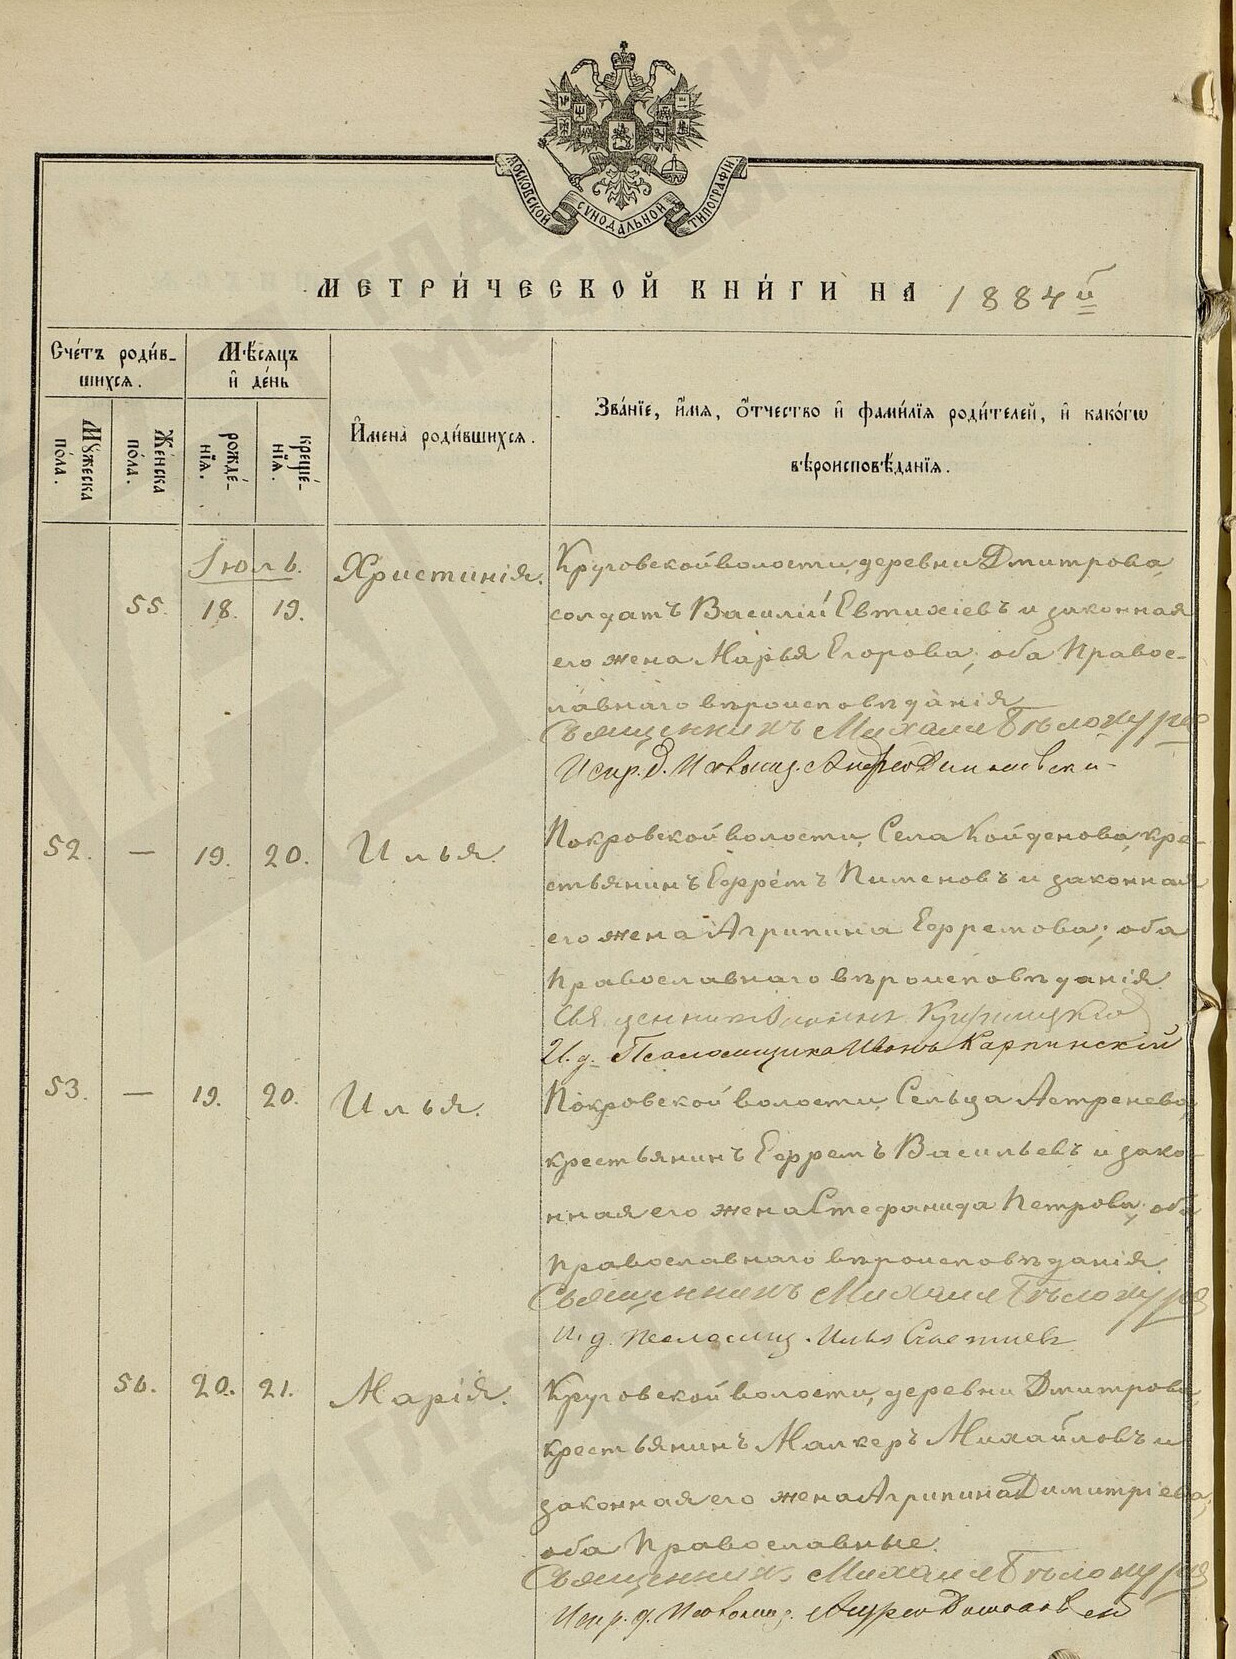 МОСКОВСКОЙ СѴНОДАЛЬНОЙ ТИПОГРАФІИ
МЕТРИ́ЧЕСКОЙ КНИ́ГИ НА 1884 й
Сче́тъ роди́в-
шихсѧ.
Мѣ́сѧцъ
и҆ де́нь
Мꙋ́жеска
по́ла.
Же́нска
по́ла.
рожде́-
нїѧ.
креще́-
нїѧ.
И҆мена̀ роди́вшихсѧ.
Зва́нїе, и҆́мѧ, ѻ҆́тчество и҆ фами́лїѧ роди́телей, и҆ како́гѡ
вѣроисповѣ́данїѧ.
Іюль.
55. 18. 19.
Христинія.
Круговской волости, деревни Дмитрова,
солдатъ Василій Евтихіевъ и законная
его жена Марья Егорова; оба Правос-
лавнаго вѣроисповѣданія
Священникъ Михаилъ Бѣлокуров
Испр. д. Псаломщ. Андрей
52. — 19. 20.
Илья.
Покровской волости, Села Койденова, кре-
стьянинъ Ефремъ Пименовъ и законная
его жена Агрипина Ефремова; оба
Православнаго вѣроисповѣданія.
Священникъ
И. д. Псаломщика Иванъ Карпинскій
53. — 19. 20.
Илья.
Покровской волости, Сельца Астренева,
крестьянинъ Ефремъ Васильевъ и зако-
нная его жена Стефанида Петрова; оба
Православнаго вѣроисповѣданія.
Священникъ Михаилъ Бѣлокуров
И. д. Псаломщ. Илья
56. 20. 21.
Марія.
Круговской волости, деревни Дмитрова,
крестьянинъ Малкеръ Михайловъ и
законная его жена Агрипина Димитріева;
оба Православные.
Священникъ Михаилъ Бѣлокуров
Испр. д. Псаломщ. Андрей